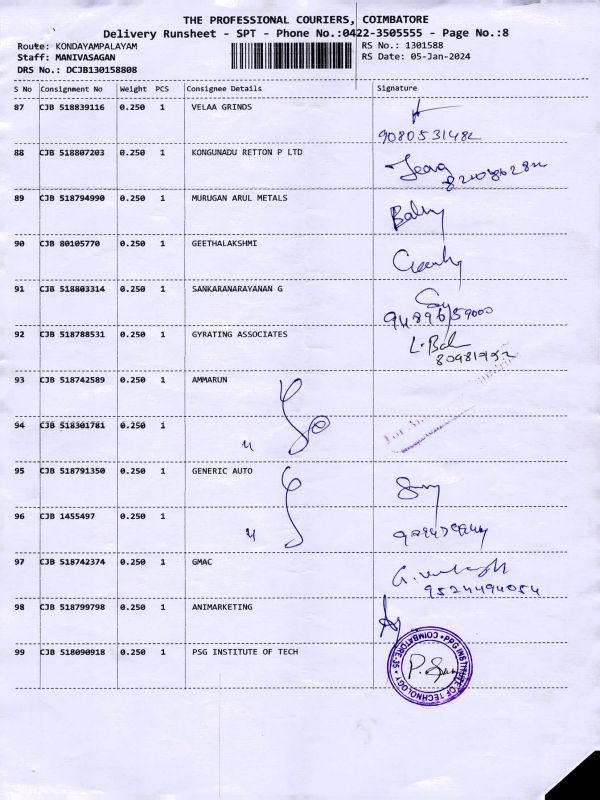 THE PROFESSIONAL COURIERS, COIMBATORE
Delivery Runsheet - SPT - Phone No.:0422-3505555 - Page No.:8
Route: KONDAYAMPALAYAM RS No.: 1301588
Staff: MANIVASAGAN RS Date: 05-Jan-2024
DRS No.: DCJB130158808
S No Consignment No Weight PCS Consignee Details Signature
87 CJB 518839116 0.250 1 VELAA GRINDS
88 CJB 518807203 0.250 1 KONGUNADU RETTON P LTD
89 CJB 518794990 0.250 1 MURUGAN ARUL METALS
90 CJB 80105770 0.250 1 GEETHALAKSHMI
91 CJB 518803314 0.250 1 SANKARANARAYANAN G
92 CJB 518788531 0.250 1 GYRATING ASSOCIATES
93 CJB 518742589 0.250 1 AMMARUN
94 CJB 518301781 0.250 1 "
95 CJB 518791350 0.250 1 GENERIC AUTO
96 CJB 1455497 0.250 1 "
97 CJB 518742374 0.250 1 GMAC
9524494054
98 CJB 518799798 0.250 1 ANIMARKETING
99 CJB 518090918 0.250 1 PSG INSTITUTE OF TECH
PPG INSTITUTE OF TECHNOLOGY COIMBATORE-35